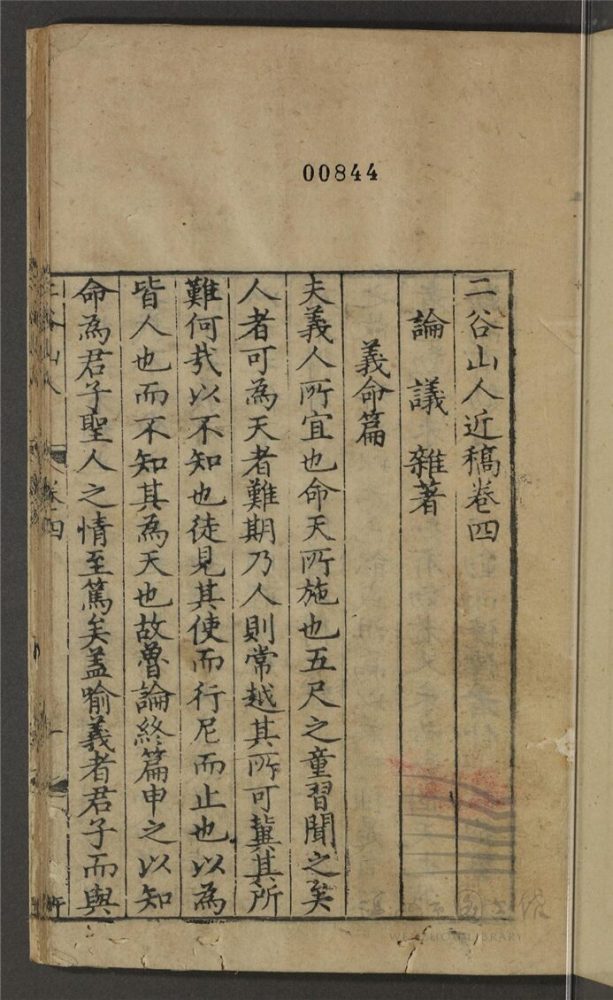 00844
二谷山人近稿卷四
論議雜著
義命篇
夫義人所宜也命天所施也五尺之童習聞之矣
人者可為天者難期乃人則常越其所可冀其所
難何㢤以不知也徒見其使而行尼而止也以為
皆人也而不知其為天也故魯論終篇申之以知
命為君子聖人之情至篤矣盖喻義者君子而與
二谷山人 卷四 一
LIBRARY